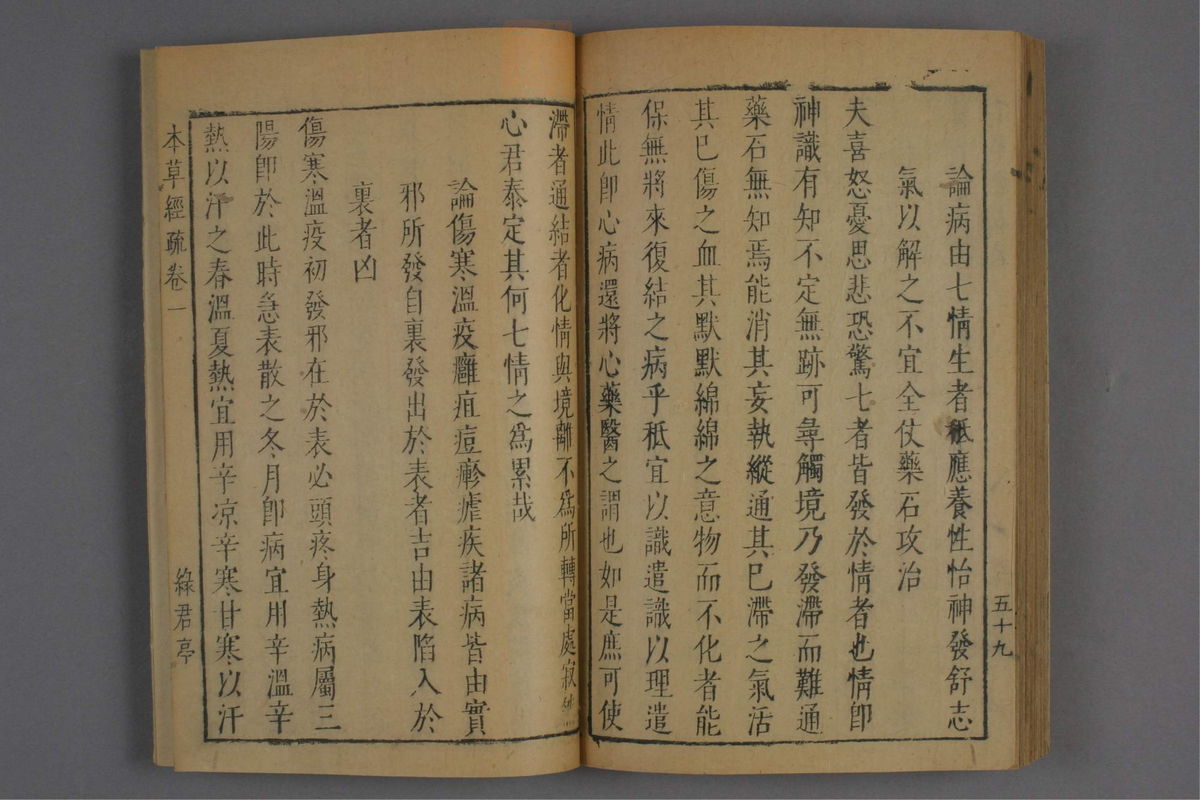 論病由七情生者秪應養性怡神發舒志
氣以解之不宜全仗藥石攻治
夫喜怒憂思悲恐驚七者皆發於情者也情卽
神識有知不定無跡可尋觸境乃發滯而難通
藥石無知焉能消其妄執縱通其已滯之氣活
其已傷之血其默默綿綿之意物而不化者能
保無將來復結之病乎秪宜以識遣識以理遣
情此卽心病還將心藥醫之謂也如是庶可使
五十九
滯者通結者化情與境離不爲所轉當處寂然
心君泰定其何七情之爲累哉
論傷寒溫疫癰疽痘疹瘧疾諸病皆由實
邪所發自裏發出於表者吉由表陷入於
裏者凶
傷寒溫疫初發邪在於表必頭疼身熱病屬三
陽卽於此時急表散之冬月卽病宜用辛溫辛
熱以汗之春溫夏熱宜用辛凉辛寒甘寒以汗
本草經疏卷一
綠君亭